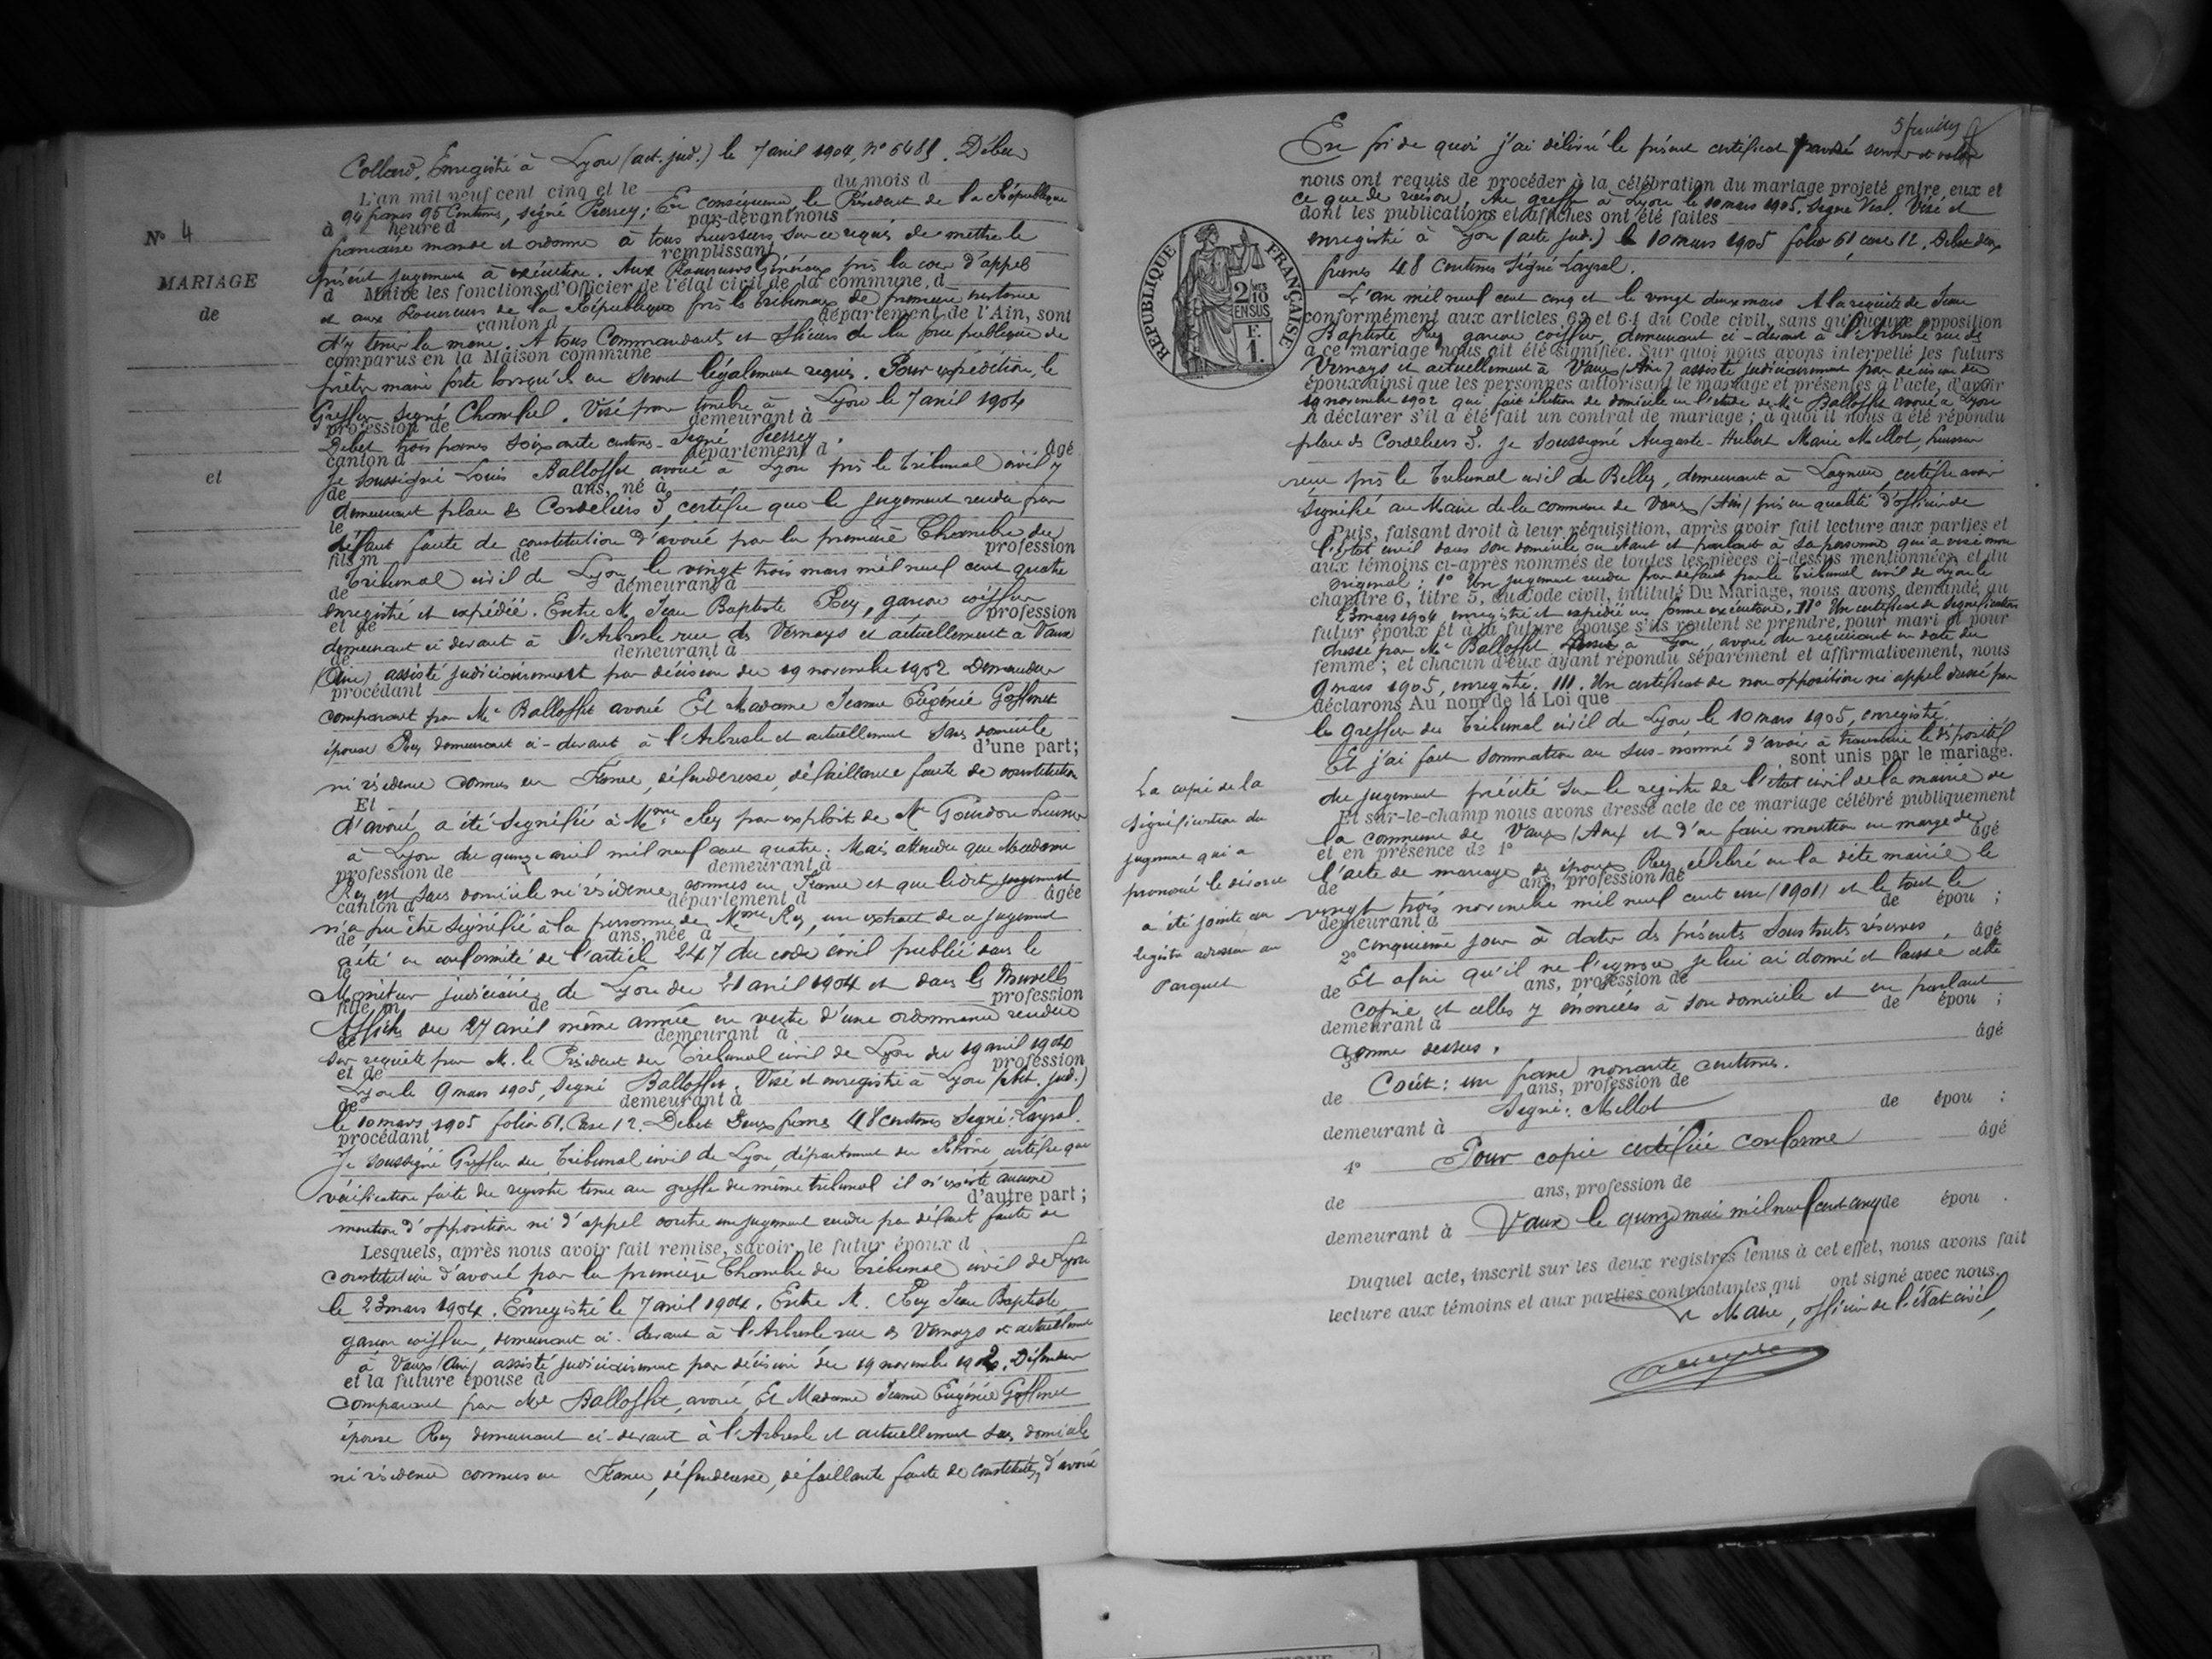 Collard. Enregistré à Lyon (act. jud.) le 7 avril 1904, N° 6481. Débet
L'an mil neuf cent cinq et le du mois d
94 francs 95 Centimes, signé Pierrey; En conséquence le Président de la République
à heure d par-devant nous
française mande et ordonne à tous huissiers sur ce requis de mettre le
remplissant
présent jugement à exécution. Aux Procureurs Généraux près la cour d'appel
d Maire les fonctions d'Officier de l'état civil de la commune d
et aux Procureurs de la République près les tribunaux de première instance
canton d département de l'Ain, sont
d'y tenir la main. A tous Commandants et officiers de la force publique de
comparus en la Maison commune
prêter main forte lorsqu'ils en seront légalement requis. Pour expédition, le
Greffier signé Chambel. Visé pour timbre à Lyon le 7 avril 1904
profession de demeurant à
Débet trois francs soixante centimes - Signé Pierrey.
canton d département d âgé
Je soussigné Louis Balloffet avoué à Lyon près le Tribunal civil y
de ans, né à
demeurant place des Cordeliers 3, certifie que le jugement rendu par
le
défaut faute de constitution d'avoué par la première Chambre du
fils m de profession
Tribunal civil de Lyon le vingt trois mars mil neuf cent quatre
de demeurant à
enregistré et expédié. Entre M. Jean Baptiste Rey, garçon coiffeur
et de profession
demeurant ci devant à l'Arbresle rue des Vernays et actuellement à Vaux
de demeurant à
(Ain) assisté judiciairement par décision du 19 novembre 1902 Demandeur
procédant
comparant par Me Balloffet avoué Et Madame Jeanne Eugénie Goffinet
épouse Rey demeurant ci-devant à l'Arbresle et actuellement sans domicile
d'une part;
ni résidence connus en France, défenderesse, défaillante faute de constitution
Et
d'avoué, a été signifié à Mme Rey par exploit de Me Gourdon huissier
à Lyon du quinze avril mil neuf cent quatre. Mais attendu que Madame
profession de demeurant à
Rey est sans domicile ni résidence connus en France et que ledit jugement
canton d département d âgée
n'a pu être signifié à la personne de Mme Rey, un extrait de ce jugement
de ans, née à
a été en conformité de l'article 247 du code civil publié dans le
le
Moniteur judiciaire de Lyon du 21 avril 1904 et dans les Nouvelles
fille m de profession
Affiches du 27 avril même année en vertu d'une ordonnance rendue
de demeurant à
sur requête par M. le Président du Tribunal civil de Lyon du 19 avril 1904
et de profession
Lyon le 9 mars 1905, signé Balloffet. Visé et enregistré à Lyon (Act. jud.)
de demeurant à
le 10 mars 1905 folio 61, Case 12. Débet Deux francs 48 centimes Signé: Layral.
procédant
Je soussigné Greffier du Tribunal civil de Lyon, département du Rhône, certifie que
vérification faite du registre tenu au greffe du même tribunal il n'existe aucune
d'autre part;
mention d'opposition ni d'appel contre un jugement rendu par défaut faute de
Lesquels, après nous avoir fait remise, savoir, le futur époux d
constitution d'avoué par la première Chambre du Tribunal civil de Lyon
le 23 mars 1904. Enregistré le 7 avril 1904. Entre M. Rey Jean Baptiste
garçon coiffeur, demeurant ci-devant à l'Arbresle rue des Vernays et actuellement
à Vaux (Ain) assisté judiciairement par décision du 19 novembre 1902. Défendeur
et la future épouse d
Comparant par Me Balloffet, avoué, Et Madame Jeanne Eugénie Goffinet
épouse Rey demeurant ci-devant à l'Arbresle et actuellement sans domicile
ni résidence connus en France, défenderesse, défaillante faute de constitution d'avoué
N° 4
MARIAGE
de
et
En foi de quoi j'ai délivré le présent certificat pour servir et valoir
nous ont requis de procéder à la célébration du mariage projeté entre eux et
ce que de raison. Au greffe à Lyon le 10 mars 1905. Signé Vial. Visé et
dont les publications et affiches ont été faites
enregistré à Lyon (acte jud.) le 10 mars 1905 folio 61, case 12. Débet deux
francs 48 Centimes Signé Layral.
L'an mil neuf cent cinq et le vingt deux mars A la requête de Jean
conformément aux articles 63 et 64 du Code civil, sans qu'aucune opposition
Baptiste Rey garçon coiffeur, demeurant ci-devant à l'Arbresle rue des
à ce mariage nous ait été signifiée. Sur quoi nous avons interpellé les futurs
Vernays et actuellement à Vaux (Ain) assisté judiciairement par décision du
époux ainsi que les personnes autorisant le mariage et présentes à l'acte, d'avoir
19 novembre 1902 qui fait élection de domicile en l'étude de Me Balloffet avoué à Lyon
à déclarer s'il a été fait un contrat de mariage; à quoi il nous a été répondu
place des Cordeliers 3. Je soussigné Auguste-Hubert Marie Millot, huissier
reçu près le Tribunal civil de Belley, demeurant à Lagnieu, certifie avoir
signifié au Maire de la commune de Vaux (Ain) pris en qualité d'officier de
Puis, faisant droit à leur réquisition, après avoir fait lecture aux parties et
l'état civil dans son domicile où étant et parlant à sa personne qui a visé mon
aux témoins ci-après nommés de toutes les pièces ci-dessus mentionnées et du
original: 1° Un jugement rendu par défaut par le Tribunal civil de Lyon le
chapitre 6, titre 5, du Code civil, intitulé Du Mariage, nous avons demandé au
23 mars 1904 enregistré et expédié en forme exécutoire. II° Un certificat de signification
futur époux et à la future épouse s'ils veulent se prendre pour mari et pour
dressé par Me Balloffet à Lyon, avoué du requérant en date du
femme; et chacun d'eux ayant répondu séparément et affirmativement, nous
9 mars 1905, enregistré. III. Un certificat de non opposition ni appel dressé par
déclarons Au nom de la Loi que
le greffier du Tribunal civil de Lyon le 10 mars 1905, enregistré.
Et j'ai fait sommation au sus-nommé d'avoir à transcrire le dispositif
sont unis par le mariage.
du jugement précité sur le registre de l'état civil de la mairie de
Et sur-le-champ nous avons dressé acte de ce mariage célébré publiquement
la commune de Vaux (Ain) et d'en faire mention en marge de
et en présence de 1° âgé
l'acte de mariage des époux Rey, célébré en la dite mairie le
de ans, profession de
vingt trois novembre mil neuf cent un (1901) et le tout le
demeurant à de épou ;
cinquième jour à dater des présents sous toutes réserves.
2° âgé
Et afin qu'il ne l'ignore je lui ai donné et laissé cette
de ans, profession de
copie et celles y énoncées à son domicile et en parlant
demeurant à de épou ;
comme dessus.
3° âgé
Coût: un franc nonante centimes.
de ans, profession de
Signé: Millot
demeurant à de épou ;
Pour copie certifiée conforme
4° âgé
de ans, profession de
demeurant à Vaux le quinze mai mil neuf cent cinq de épou .
Duquel acte, inscrit sur les deux registres tenus à cet effet, nous avons fait
lecture aux témoins et aux parties contractantes qui ont signé avec nous.
Le Maire, officier de l'état civil,
RÉPUBLIQUE FRANÇAISE
2/10
EN SUS
F.
1.
La copie de la
signification du
jugement qui a
prononcé le divorce
a été jointe au
registre adressé au
Parquet